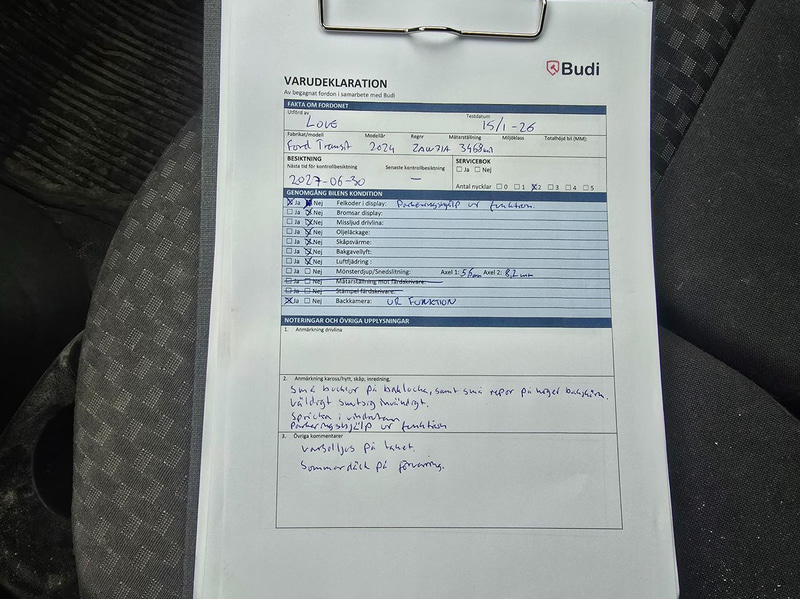 Budi
VARUDEKLARATION
Av begagnat fordon i samarbete med Budi
FAKTA OM FORDONET
Utförd av Testdatum
LOVE 15/1-26
Fabrikat/modell Modellår Regnr Mätarställning Miljöklass Totalhöjd bil (MM):
Ford Transit 2024 3468mil
BESIKTNING SERVICEBOK
Nästa tid för kontrollbesiktning Senaste kontrollbesiktning ☐ Ja ☐ Nej
2027-06-30 –
Antal nycklar ☐ 0 ☐ 1 ☒ 2 ☐ 3 ☐ 4 ☐ 5
GENOMGÅNG BILENS KONDITION
☒ Ja ☒ Nej Felkoder i display: Parkeringshjälp ur funktion.
☐ Ja ☒ Nej Bromsar display:
☐ Ja ☒ Nej Missljud drivlina:
☐ Ja ☒ Nej Oljeläckage:
☐ Ja ☒ Nej Skåpsvärme:
☐ Ja ☒ Nej Bakgavellyft:
☐ Ja ☒ Nej Luftfjädring:
☐ Ja ☐ Nej Mönsterdjup/Snedslitning: Axel 1: 5,6mm Axel 2: 8,2 mm
☐ Ja ☐ Nej Mätarställning mot färdskrivare:
☐ Ja ☐ Nej Stämpel färdskrivare:
☒ Ja ☐ Nej Backkamera: UR FUNKTION
NOTERINGAR OCH ÖVRIGA UPPLYSNINGAR
1. Anmärkning drivlina
2. Anmärkning kaross/hytt, skåp, inredning.
Små bucklor på baklucka, samt små repor på höger bakskärm.
Väldigt smutsig invändigt.
Spricka i vindrutan
Parkeringshjälp ur funktion
3. Övriga kommentarer
Varselljus på taket.
Sommardäck på förvaring.